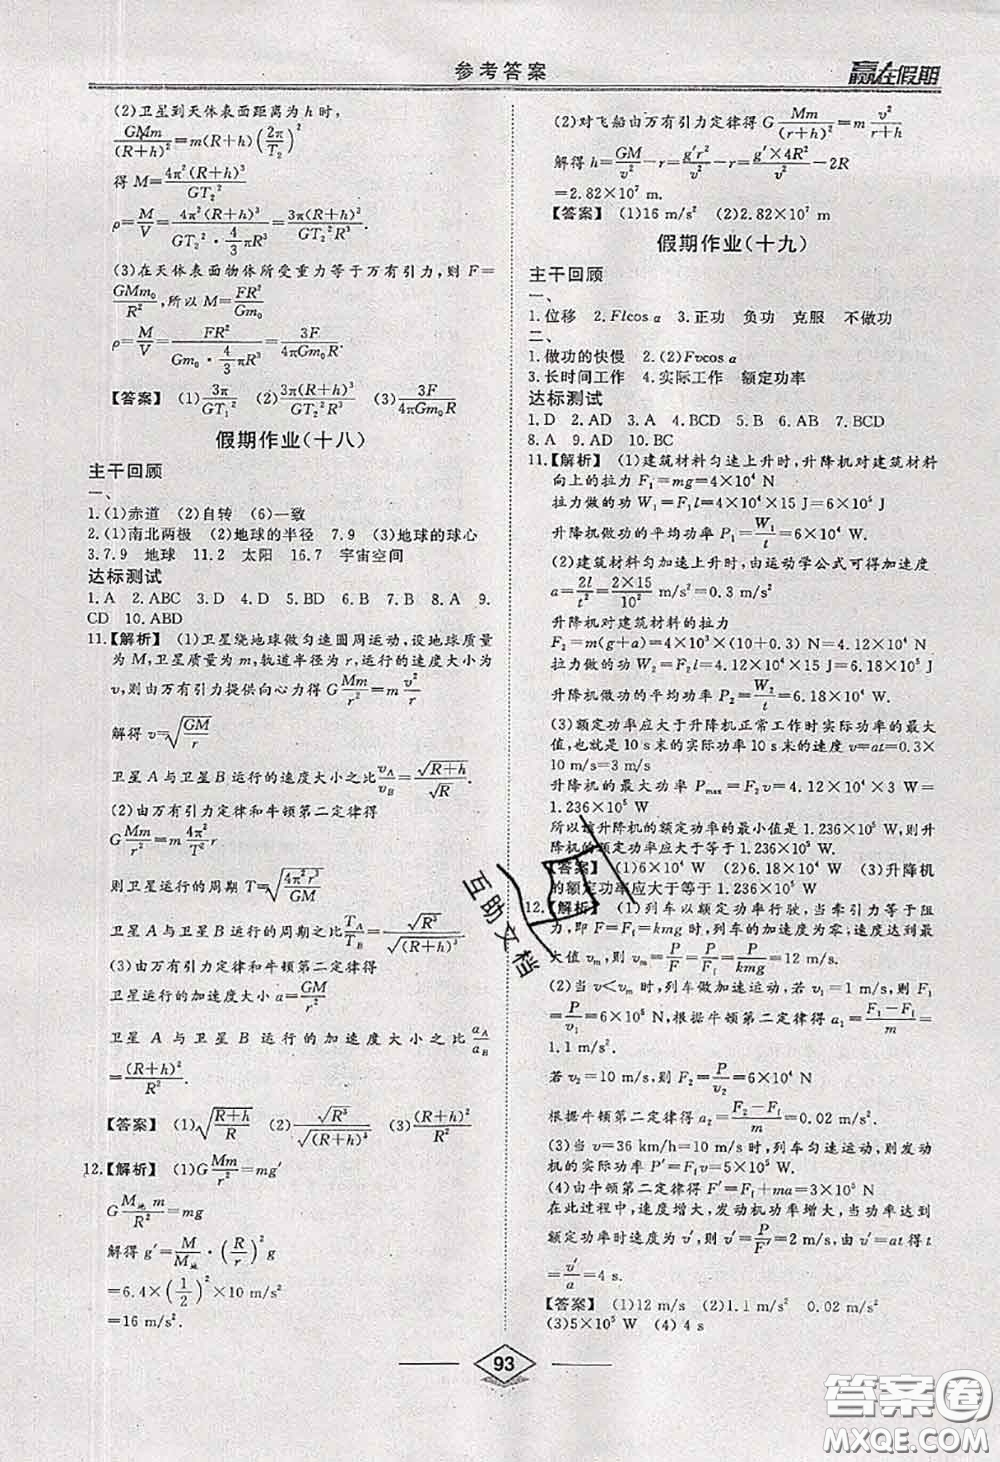 参考答案
赢在假期
(2)卫星到天体表面距离为 h 时，
GMm/(R+h)²=m(R+h)(2π/T₂)²
得 M=4π²(R+h)³/GT₂²
ρ=M/V=4π²(R+h)³/(GT₂²·4/3πR³)=3π(R+h)³/GT₂²R³
(3)在天体表面物体所受重力等于万有引力，则 F=
GMm₀/R²，所以 M=FR²/Gm₀
ρ=M/V=FR²/(Gm₀·4/3πR³)=3F/4πGm₀R
【答案】 (1)3π/GT₁² (2)3π(R+h)³/GT₂²R³ (3)3F/4πGm₀R
假期作业(十八)
主干回顾
一、
1.(1)赤道 (2)自转 (6)一致
2.(1)南北两极 (2)地球的半径 7.9 (3)地球的球心
3.7.9 地球 11.2 太阳 16.7 宇宙空间
达标测试
1.A 2.ABC 3.D 4.D 5.D 6.B 7.B 8.A 9.
CD 10.ABD
11.【解析】 (1)卫星绕地球做匀速圆周运动，设地球质量
为 M，卫星质量为 m，轨道半径为 r，运行的速度大小为
v，则由万有引力提供向心力得 GMm/r²=mv²/r
解得 v=√(GM/r)
卫星 A 与卫星 B 运行的速度大小之比v_A/v_B=√(R+h)/√R.
(2)由万有引力定律和牛顿第二定律得
GMm/r²=m4π²/T²r
则卫星运行的周期 T=√(4π²r³/GM)
卫星 A 与卫星 B 运行的周期之比T_A/T_B=√R³/√(R+h)³
(3)由万有引力定律和牛顿第二定律得
卫星运行的加速度大小 a=GM/r²
卫星 A 与卫星 B 运行的加速度大小之比a_A/a_B
=(R+h)²/R².
【答案】 (1)√((R+h)/R) (2)√R³/√(R+h)³ (3)(R+h)²/R²
12.【解析】 (1)GMm/r²=mg′
GM地m/R²=mg
解得 g′=M/M地·(R/r)²g
=6.4×(1/2)²×10 m/s²
=16 m/s².
(2)对飞船由万有引力定律得 GMm/(r+h)²=mv²/(r+h)
解得 h=GM/v²-r=g′r²/v²-r=g′×4R²/v²-2R
=2.82×10⁷ m.
【答案】 (1)16 m/s² (2)2.82×10⁷ m
假期作业(十九)
主干回顾
一、
1.位移 2.Flcos α 3.正功 负功 克服 不做功
二、
1.做功的快慢 2.(2)Fvcos α
3.长时间工作 4.实际工作 额定功率
达标测试
1.D 2.AD 3.A 4.BCD 5.B 6.AB 7.BCD
8.A 9.AD 10.BC
11.【解析】 (1)建筑材料匀速上升时，升降机对建筑材料
向上的拉力 F₁=mg=4×10⁴ N
拉力做的功 W₁=F₁l=4×10⁴×15 J=6×10⁵ J
升降机做功的平均功率 P₁=W₁/t=6×10⁴ W.
(2)建筑材料匀加速上升时，由运动学公式可得加速度
a=2l/t²=2×15/10² m/s²=0.3 m/s²
升降机对建筑材料的拉力
F₂=m(g+a)=4×10³×(10+0.3) N=4.12×10⁴ N
拉力做的功 W₂=F₂l=4.12×10⁴×15 J=6.18×10⁵ J
升降机做功的平均功率 P₂=W₂/t=6.18×10⁴ W.
(3)额定功率应大于升降机正常工作时实际功率的最大
值，也就是 10 s末的实际功率10 s末的速度 v=at=0.3×
10 m/s=3 m/s
升降机的最大功率 Pmax=F₂v=4.12×10⁴×3 W=
1.236×10⁵ W
所以该升降机的额定功率的最小值是 1.236×10⁵ W，升
降机的额定功率应大于等于 1.236×10⁵ W.
【答案】 (1)6×10⁴ W (2)6.18×10⁴ W (3)升降机
的额定功率应大于等于 1.236×10⁵ W
12.【解析】 (1)列车以额定功率行驶，当牵引力等于阻
力，即 F=Ff=kmg 时，列车的加速度为零，速度达到最
大值 vm，则 vm=P/F=P/Ff=P/kmg=12 m/s.
(2)当 v<vm 时，列车做加速运动，若 v₁=1 m/s，则 F₁
=P/v₁=6×10⁵ N，根据牛顿第二定律得 a₁=(F₁-Ff)/m=
1.1 m/s².
若 v₂=10 m/s，则 F₂=P/v₂=6×10⁴ N
根据牛顿第二定律得 a₂=(F₂-Ff)/m=0.02 m/s².
(3)当 v=36 km/h=10 m/s 时，列车匀速运动，则发动
机的实际功率 P′=Ffv=5×10⁵ W.
(4)由牛顿第二定律得 F′=Ff+ma=3×10⁵ N
在此过程中，速度增大，发动机功率增大，当功率达到
额定功率时速度为 v′，则 v′=P/F′=2 m/s，由 v′=at得 t
=v′/a=4 s.
【答案】 (1)12 m/s (2)1.1 m/s² 0.02 m/s²
(3)5×10⁵ W (4)4 s
93
互助文档
答案圈
MXQE.COM